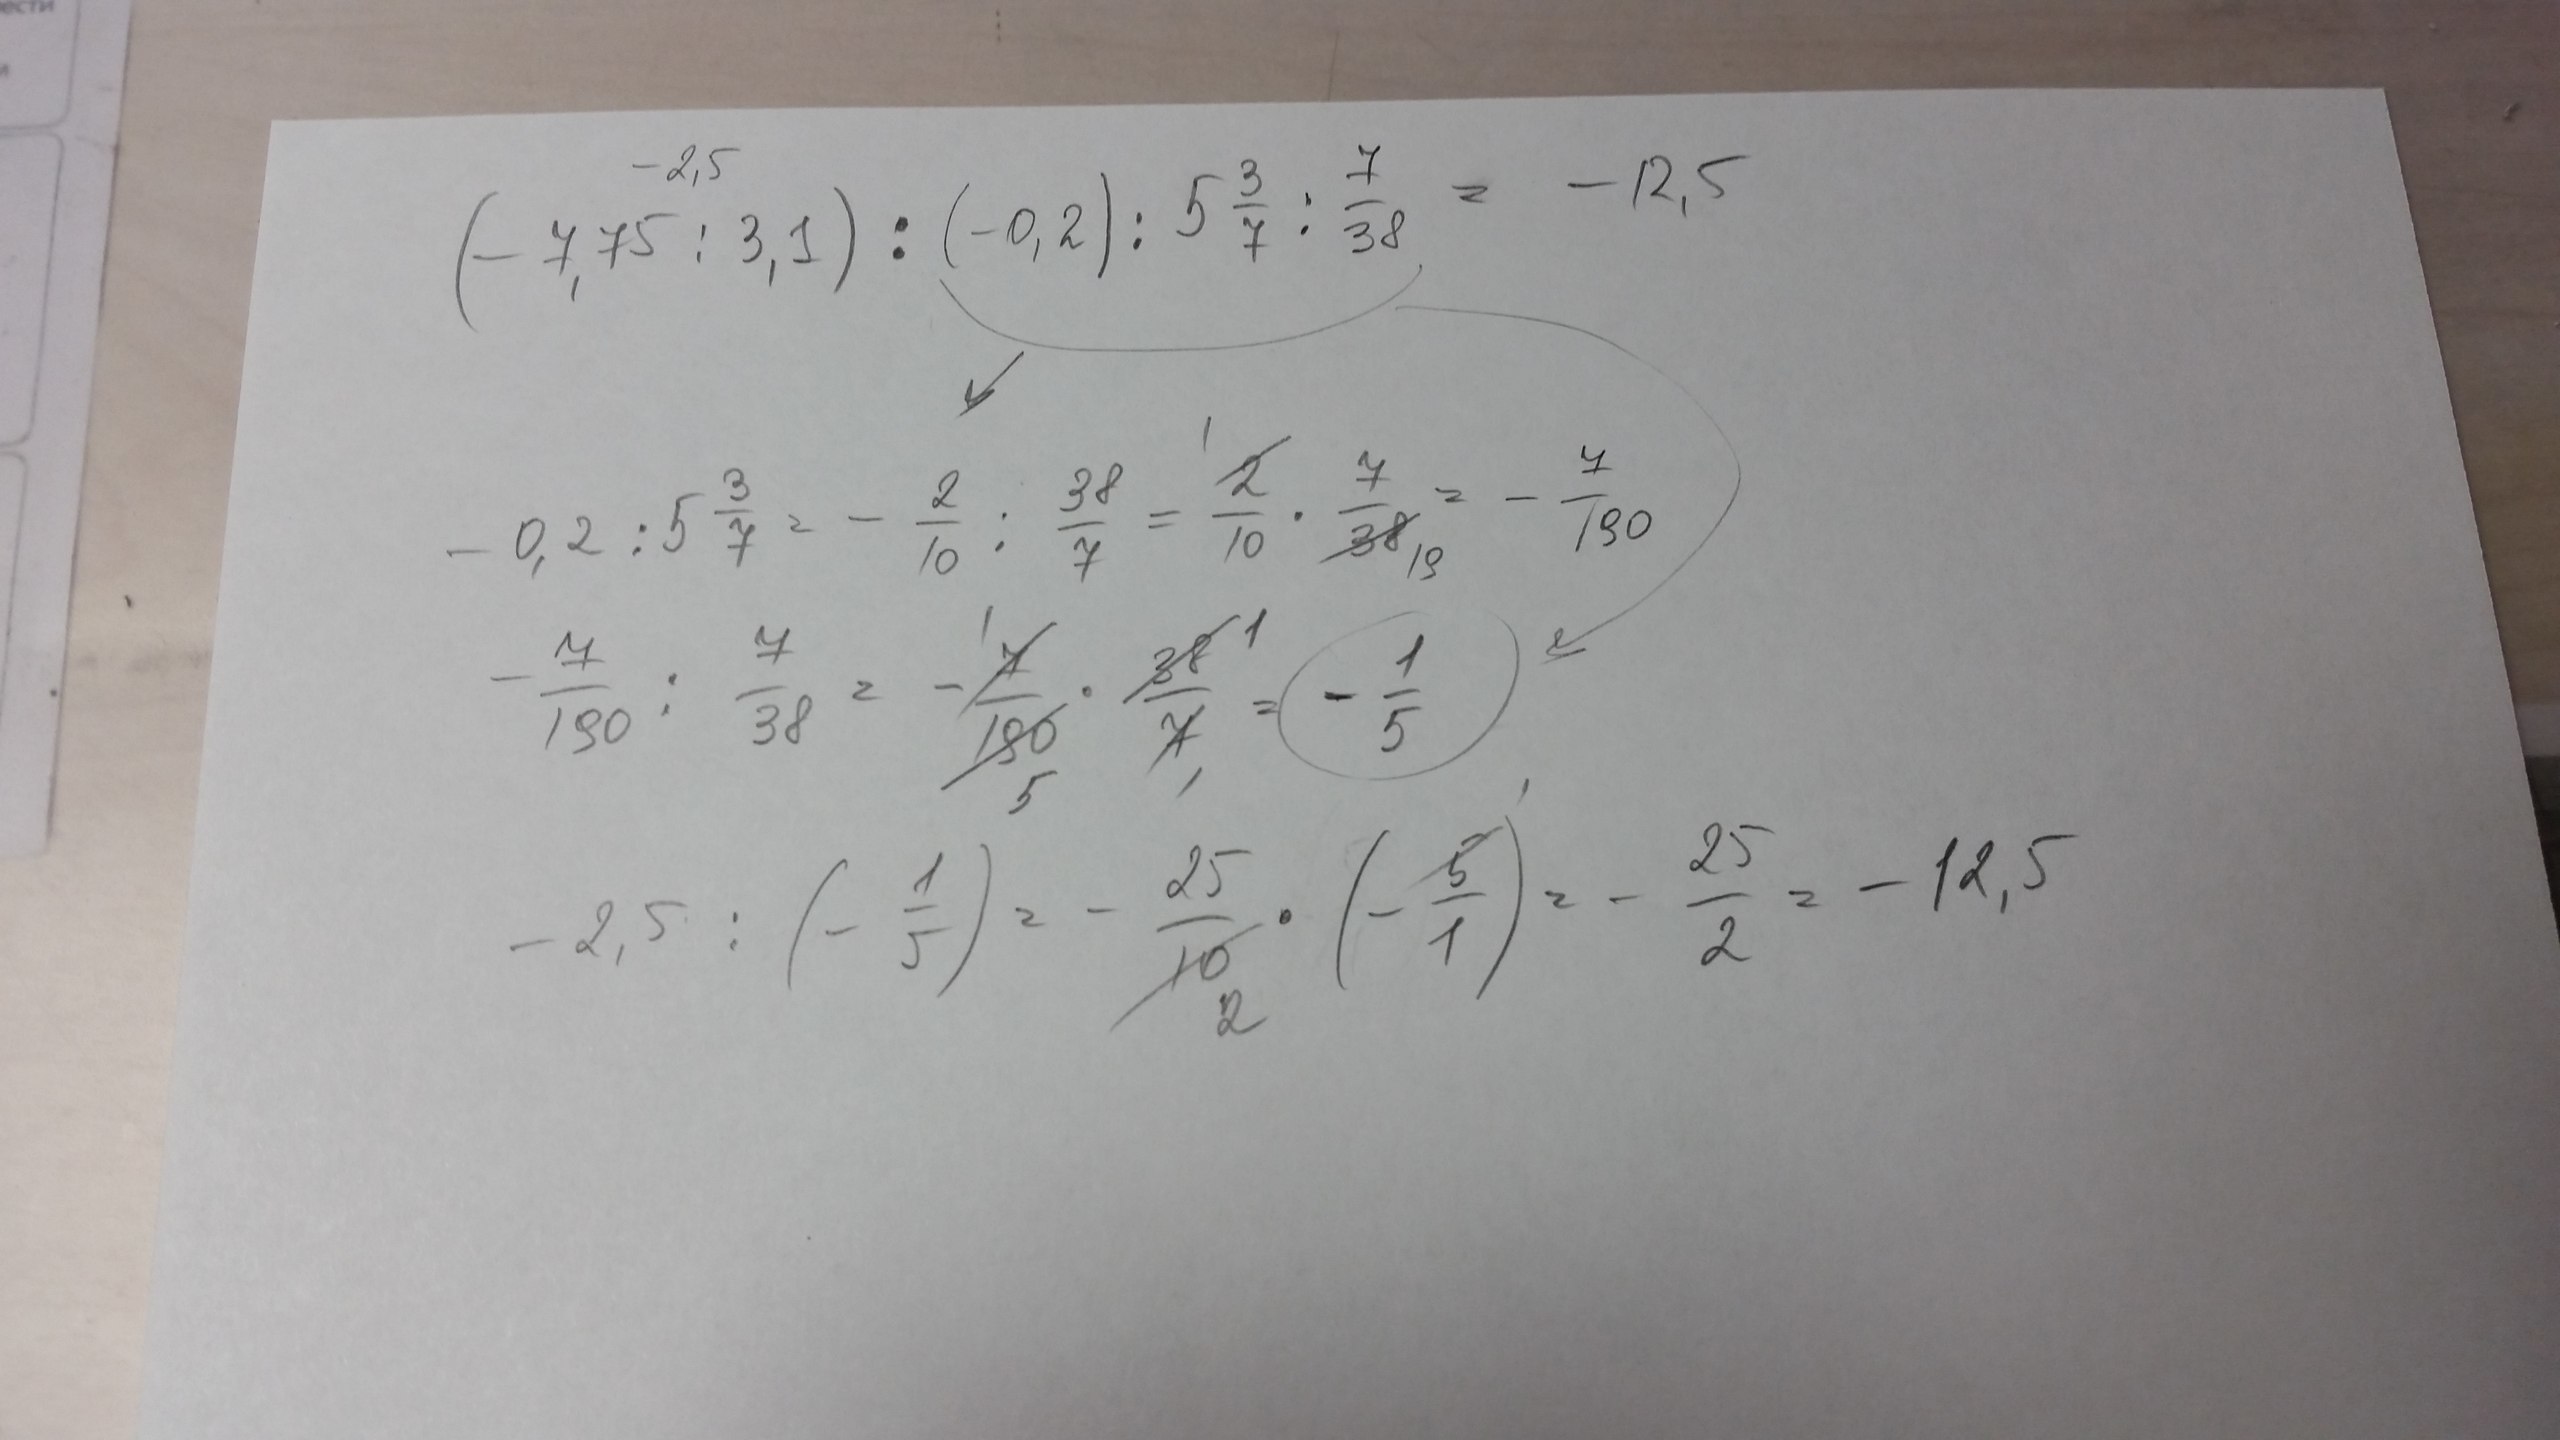 ести
и
-2,5
(-7,75 : 3,1) : (-0,2) : 5 3/7 : 7/38 = -12,5
-0,2 : 5 3/7 = -2/10 : 38/7 = 1 2/10 · 7/38 19 = -7/190
-7/190 : 7/38 = - 1 7/190 5 · 38 1/7 1 = -1/5
-2,5 : (-1/5) = -25/10 2 · (-5/1) 1 = -25/2 = -12,5